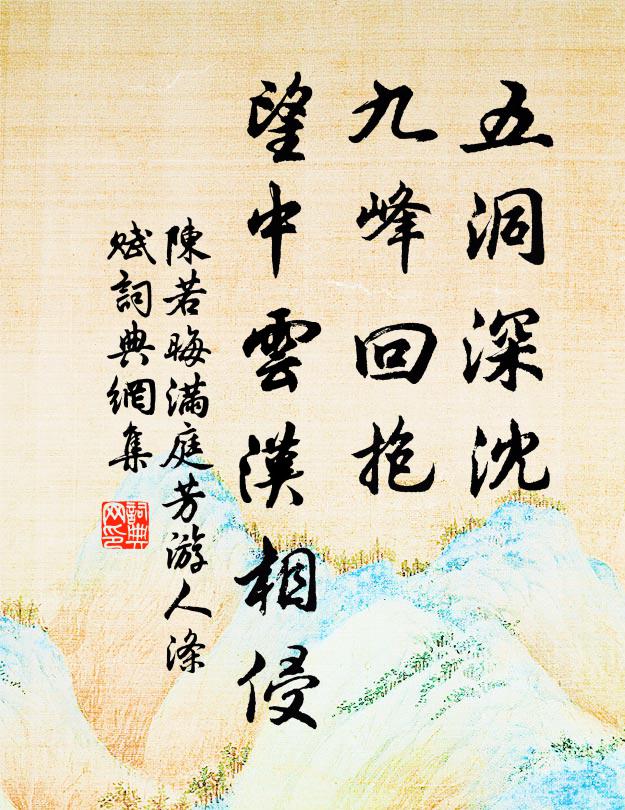 五洞深沈
九峰回抱
望中雲漢相侵
陳若晦滿庭芳游人滌
賦詞典網集
詞典
网印